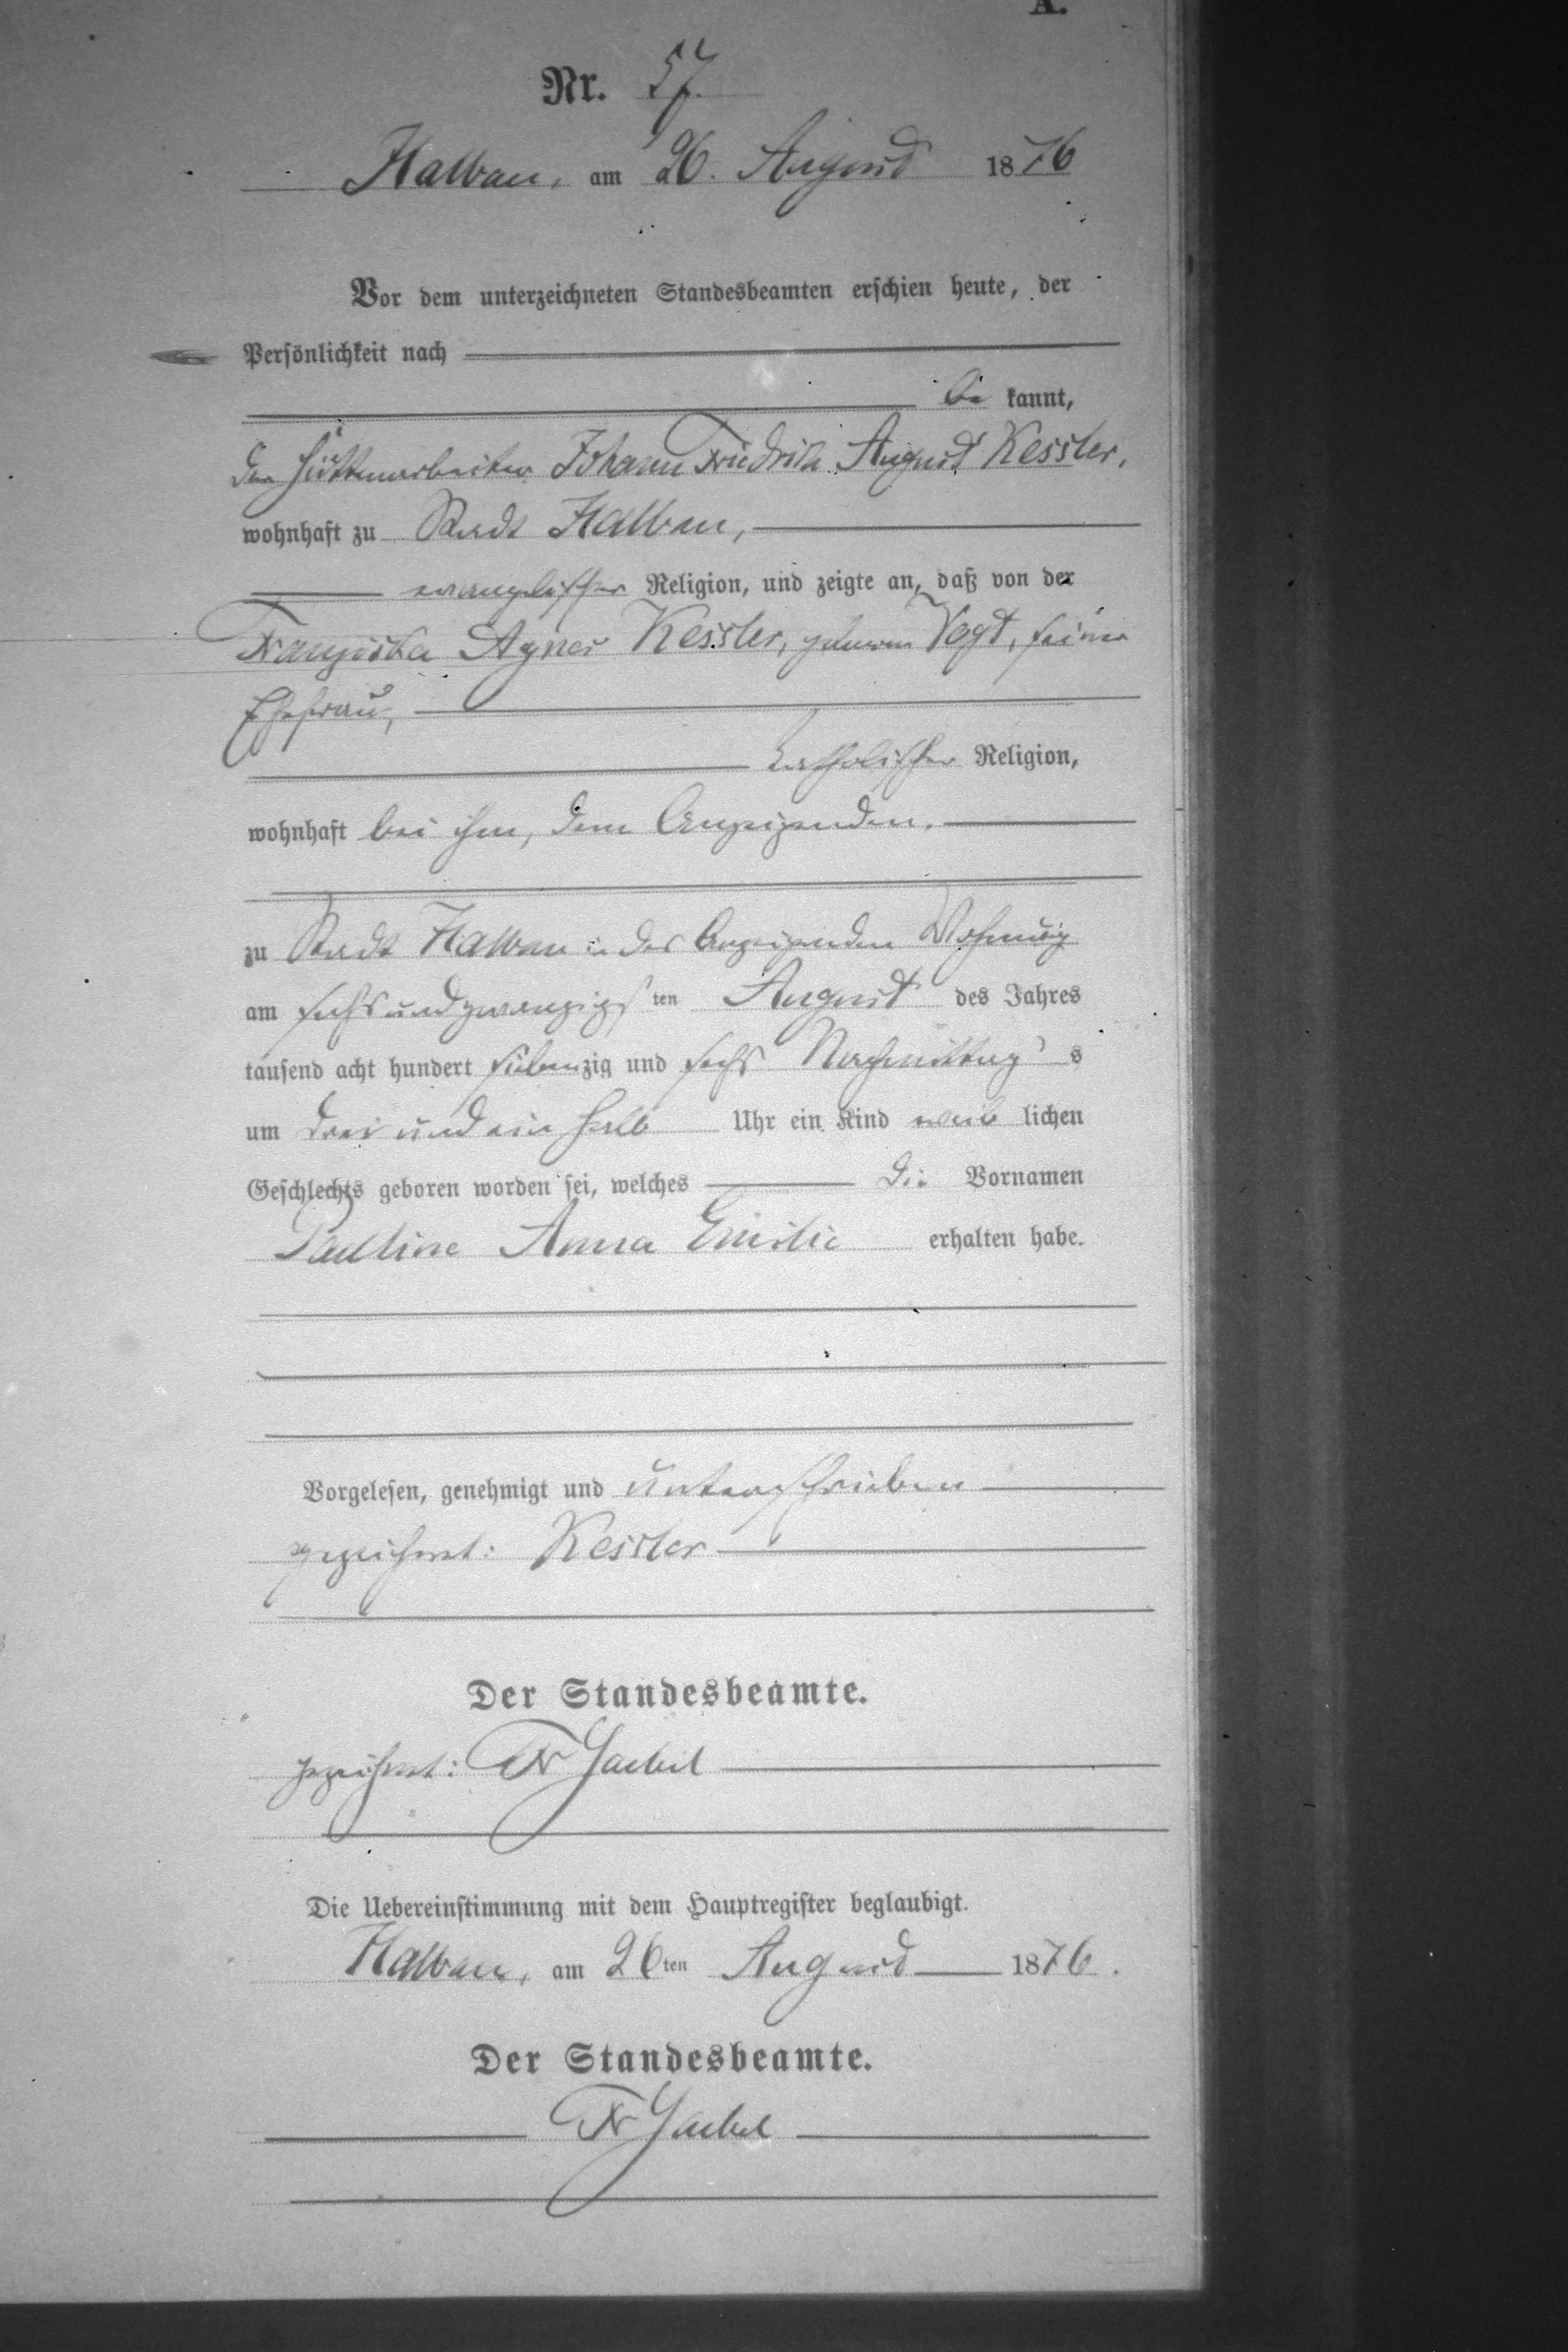 A.
Nr. 57.
Halbau, am 26. August 1876
Vor dem unterzeichneten Standesbeamten erschien heute, der
Persönlichkeit nach
be kannt,
der Hüttenarbeiter Johann Friedrich August Kessler,
wohnhaft zu Stadt Halbau,
evangelischer Religion, und zeigte an, daß von der
Franziska Agnes Kessler, geborene Vogt, seiner
Ehefrau,
katholischer Religion,
wohnhaft bei ihm, dem Anzeigenden.
zu Stadt Halbau in des Anzeigenden Wohnung
am sechs und zwanzigs ten August des Jahres
tausend acht hundert siebenzig und sechs Nachmittag s
um drei und ein halb Uhr ein Kind weib lichen
Geschlechts geboren worden sei, welches die Vornamen
Pauline Anna Emilie erhalten habe.
Vorgelesen, genehmigt und unterschrieben
gezeichnet: Kessler
Der Standesbeamte.
gezeichnet: Fr
Die Uebereinstimmung mit dem Hauptregister beglaubigt.
Halbau, am 26ten August 1876.
Der Standesbeamte.
Fr